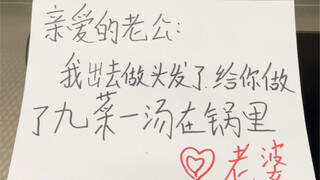 亲爱的老公:
我出去做头发了.给你做
了九菜一汤在锅里
老婆